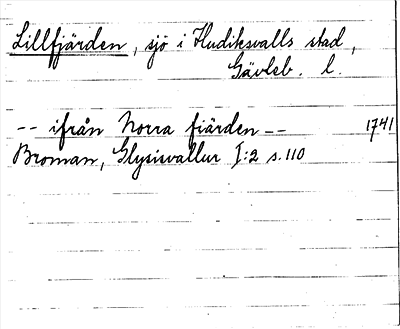 Lillfjärden, sjö i Hudiksvalls stad,
Gävleb. l.
-- ifrån Norra fiärden -- 1741
Broman, Glysisvallur I:2 s. 110